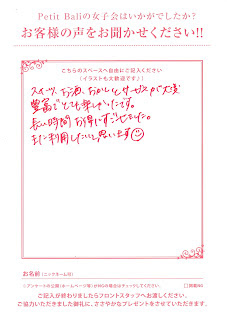 Petit Baliの女子会はいかがでしたか?
お客様の声をお聞かせください!!
こちらのスペースへ自由にご記入ください
(イラストも大歓迎です♪)
スイーツ、お酒、おかしとサービスが大変
豊富でとても楽しかったです。
長い時間お得にすごせました。
また利用したいと思います
お名前(ニックネーム可)
ご記入が終わりましたらフロントスタッフへお渡しください。
ご協力いただきました御礼に、ささやかなプレゼントをさせていただきます。